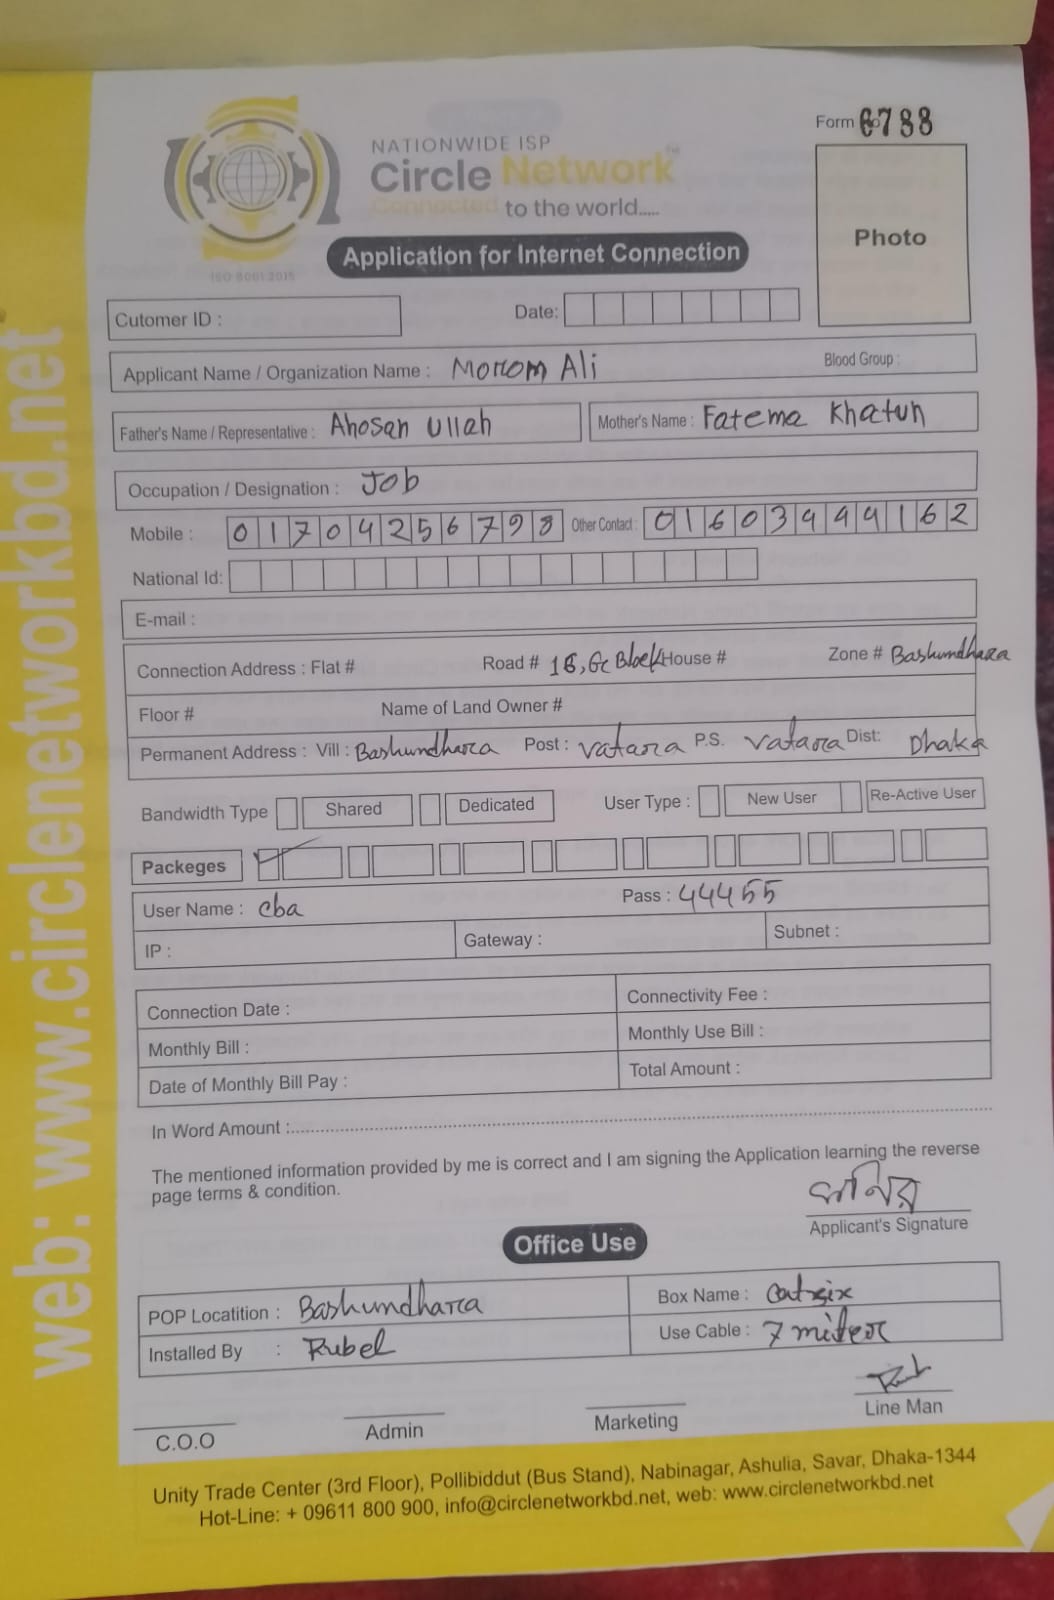 Form 6788
NATIONWIDE ISP
Circle Network™
Connected to the world.....
ISO 9001:2015
Photo
Application for Internet Connection
Cutomer ID :
Date:
Applicant Name / Organization Name : Morom Ali Blood Group :
Father's Name / Representative : Ahosan Ullah Mother's Name : Fatema Khatun
Occupation / Designation : Job
Mobile : 01704256798 Other Contact : 01603944162
National Id:
E-mail :
Connection Address : Flat # Road # 18, Block House # Zone # Bashundhara
Floor # Name of Land Owner #
Permanent Address : Vill : Bashundhara Post : vatara P.S. vatara Dist: Dhaka
Bandwidth Type Shared Dedicated User Type : New User Re-Active User
Packeges
User Name : cba Pass : 44455
IP : Gateway : Subnet :
Connection Date : Connectivity Fee :
Monthly Bill : Monthly Use Bill :
Date of Monthly Bill Pay : Total Amount :
In Word Amount :
The mentioned information provided by me is correct and I am signing the Application learning the reverse
page terms & condition.
Applicant's Signature
Office Use
POP Locatition : Bashundhara Box Name :
Installed By : Rubel Use Cable : 7 miter
C.O.O Admin Marketing Line Man
Unity Trade Center (3rd Floor), Pollibiddut (Bus Stand), Nabinagar, Ashulia, Savar, Dhaka-1344
Hot-Line: + 09611 800 900, info@circlenetworkbd.net, web: www.circlenetworkbd.net
web: www.circlenetworkbd.net